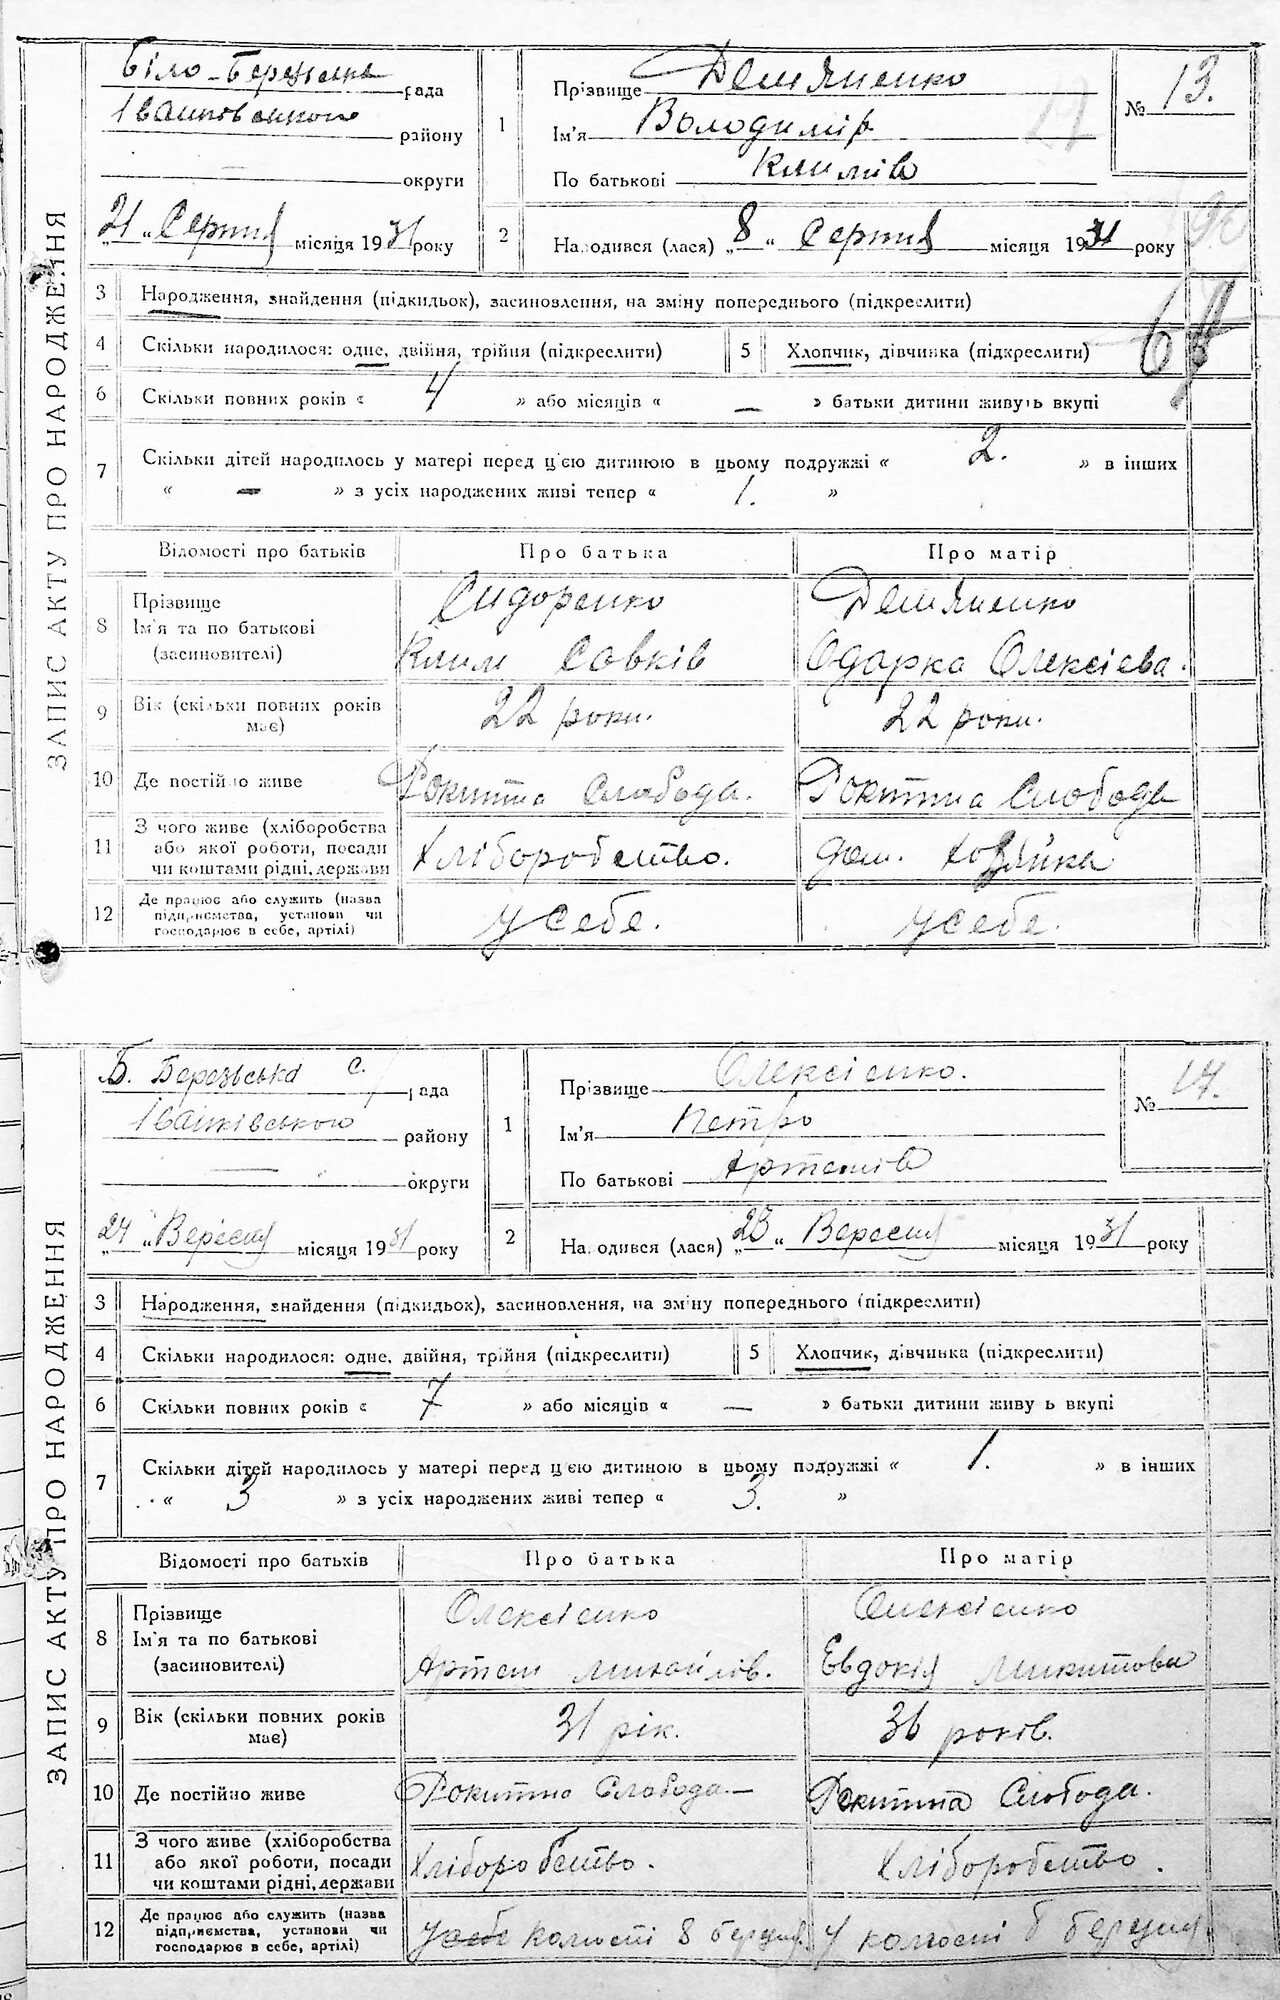 ЗАПИС АКТУ ПРО НАРОДЖЕННЯ
Біло-Березька рада
Іванковського району
— округи
„21 „ Серпня місяця 1931 року
1 Прізвище Демяненко
Ім'я Володимір
По батькові Климів
№ 13.
2 Народився (лася) „8 „ Серпня місяця 1931 року
3 Народження, знайдення (підкидьок), засиновлення, на зміну попереднього (підкреслити)
4 Скільки народилося: одне, двійня, трійня (підкреслити) 5 Хлопчик, дівчинка (підкреслити)
6 Скільки повних років « 4 » або місяців « — » батьки дитини живуть вкупі
7 Скільки дітей народилось у матері перед ц'єю дитиною в цьому подружжі « 2. » в інших
« — » з усіх народжених живі тепер « 1. »
Відомості про батьків Про батька Про матір
8 Прізвище Сидоренко Демяненко
Ім'я та по батькові Клим Савків Одарка Олексієва.
(засиновителі)
9 Вік (скільки повних років має) 22 роки. 22 роки.
10 Де постійно живе Рокитна Слобода. Рокитна Слобода
11 З чого живе (хліборобства Хліборобство. дом. хозяйка
або якої роботи, посади
чи коштами рідні, держави
12 Де працює або служить (назва У себе. У себе.
підприємства, установи чи
господарює в себе, артілі)
ЗАПИС АКТУ ПРО НАРОДЖЕННЯ
Б. Березьська с/рада
Іванківського району
— округи
„24 „ Вересня місяця 1931 року
1 Прізвище Олексієнко.
Ім'я Петро
По батькові Артемів
№ 14.
2 Народився (лася) „23 „ Вересня місяця 1931 року
3 Народження, знайдення (підкидьок), засиновлення, на зміну попереднього (підкреслити)
4 Скільки народилося: одне, двійня, трійня (підкреслити) 5 Хлопчик, дівчинка (підкреслити)
6 Скільки повних років « 7 » або місяців « — » батьки дитини живуть вкупі
7 Скільки дітей народилось у матері перед ц'єю дитиною в цьому подружжі « 1. » в інших
« 3 » з усіх народжених живі тепер « 3. »
Відомості про батьків Про батька Про матір
8 Прізвище Олексієнко Олексієнко
Ім'я та по батькові Артем Михайлів. Евдокія Микитова
(засиновителі)
9 Вік (скільки повних років має) 31 рік. 36 років.
10 Де постійно живе Рокитна Слобода — Рокитна Слобода.
11 З чого живе (хліборобства Хліборобство. Хліборобство.
або якої роботи, посади
чи коштами рідні, держави
12 Де працює або служить (назва У себе колгоспі 8 березня. У колгоспі 8 березня
підприємства, установи чи
господарює в себе, артілі)